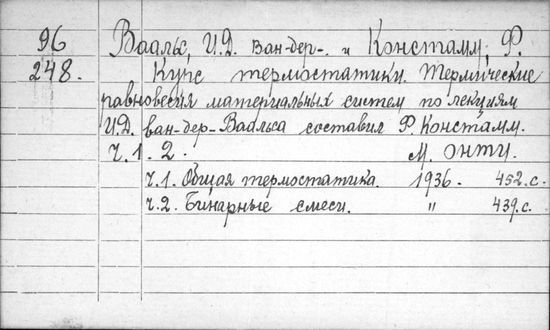 96 Ваальс, И.Д. ван-дер-. и Констамм, Ф.
248. Курс термостатики. Термические
равновесия материальных систем по лекциям
И.Д. ван-дер-Ваальса составил Ф. Констамм.
Ч.1. 2. М. ОНТИ.
ч.1. Общая термостатика. 1936. 452.с.
ч.2. Бинарные смеси. " 439.с.